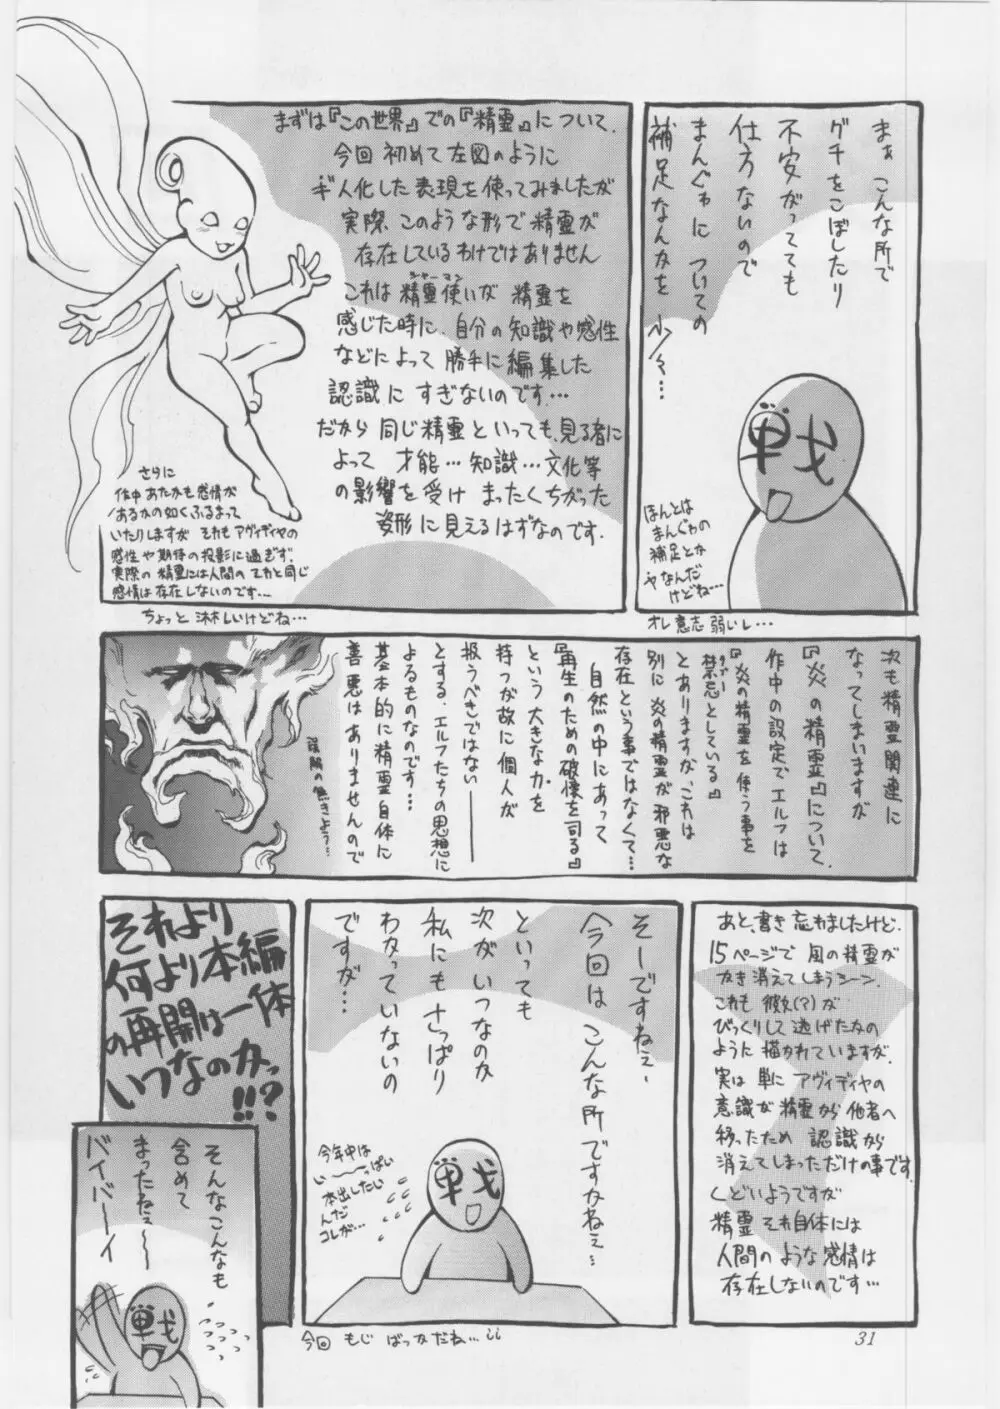 まぁ こんな所で
グチをこぼしたり
不安がってても
仕方ないので
まんがに ついての
補足なんかを
戦
ほんとは
まんがの
補足とか
やなんだ
けどね…
オレ意志弱いし…
まずは『この世界』での『精霊』について、
今回 初めて左図のように
ギ人化した表現を使ってみましたが
実際、このような形で精霊が
存在しているわけではありません
これは 精霊使いが 精霊を
シャーマン
感じた時に、自分の知識や感性
などによって 勝手に編集した
認識に すぎないのです…
だから 同じ精霊といっても、見る者に
よって 才能…知識…文化等
の影響を受け まったくちがった
姿形に見えるはずなのです.
さらに
作中 あたかも感情が
あるかの如くふるまって
いたりしますが それも アヴィディヤの
感性や期待の投影に過ぎず、
実際の精霊には人間のソレと同じ
感情は存在しないのです…
ちょっと 淋しいけどね…
次も精霊関連に
なってしまいますが
『炎の精霊』について、
作中の設定でエルフは
『炎の精霊を使う事を
禁忌としている』
タブー
とありますが、これは
別に 炎の精霊が 邪悪な
存在という事ではなくて…
自然の中にあって
『再生のための破壊を司る』
という 大きな力を
持つが故に個人が
扱うべきではない――
とする、エルフたちの思想に
よるものなのです…
基本的に精霊自体に
善悪はありませんので
あと、書き忘れましたけど、
15ページで 風の精霊が
かき消えてしまうシーン、
これも 彼女(?)が
びっくりして 逃げたかの
ように 描かれていますが、
実は 単に アヴィディヤの
意識が 精霊から 他者へ
移ったため 認識から
消えてしまっただけの事です.
くどいようですが
精霊 それ自体には
人間のような感情は
存在しないのです…
そーですねぇ、
今回は こんな所ですかねぇ…
といっても
次が いつなのか
私にも さっぱり
わかっていないの
ですが…
今年中は
い――っぱい
本出したい
んだ
コレが…
戦
今回 もじ ばっかだね…
それより
何より本編
の再開は一体
いつなのかっ
!!?
そんなこんなも
含めて
まったねぇ〜〜
バイバーイ
戦
31